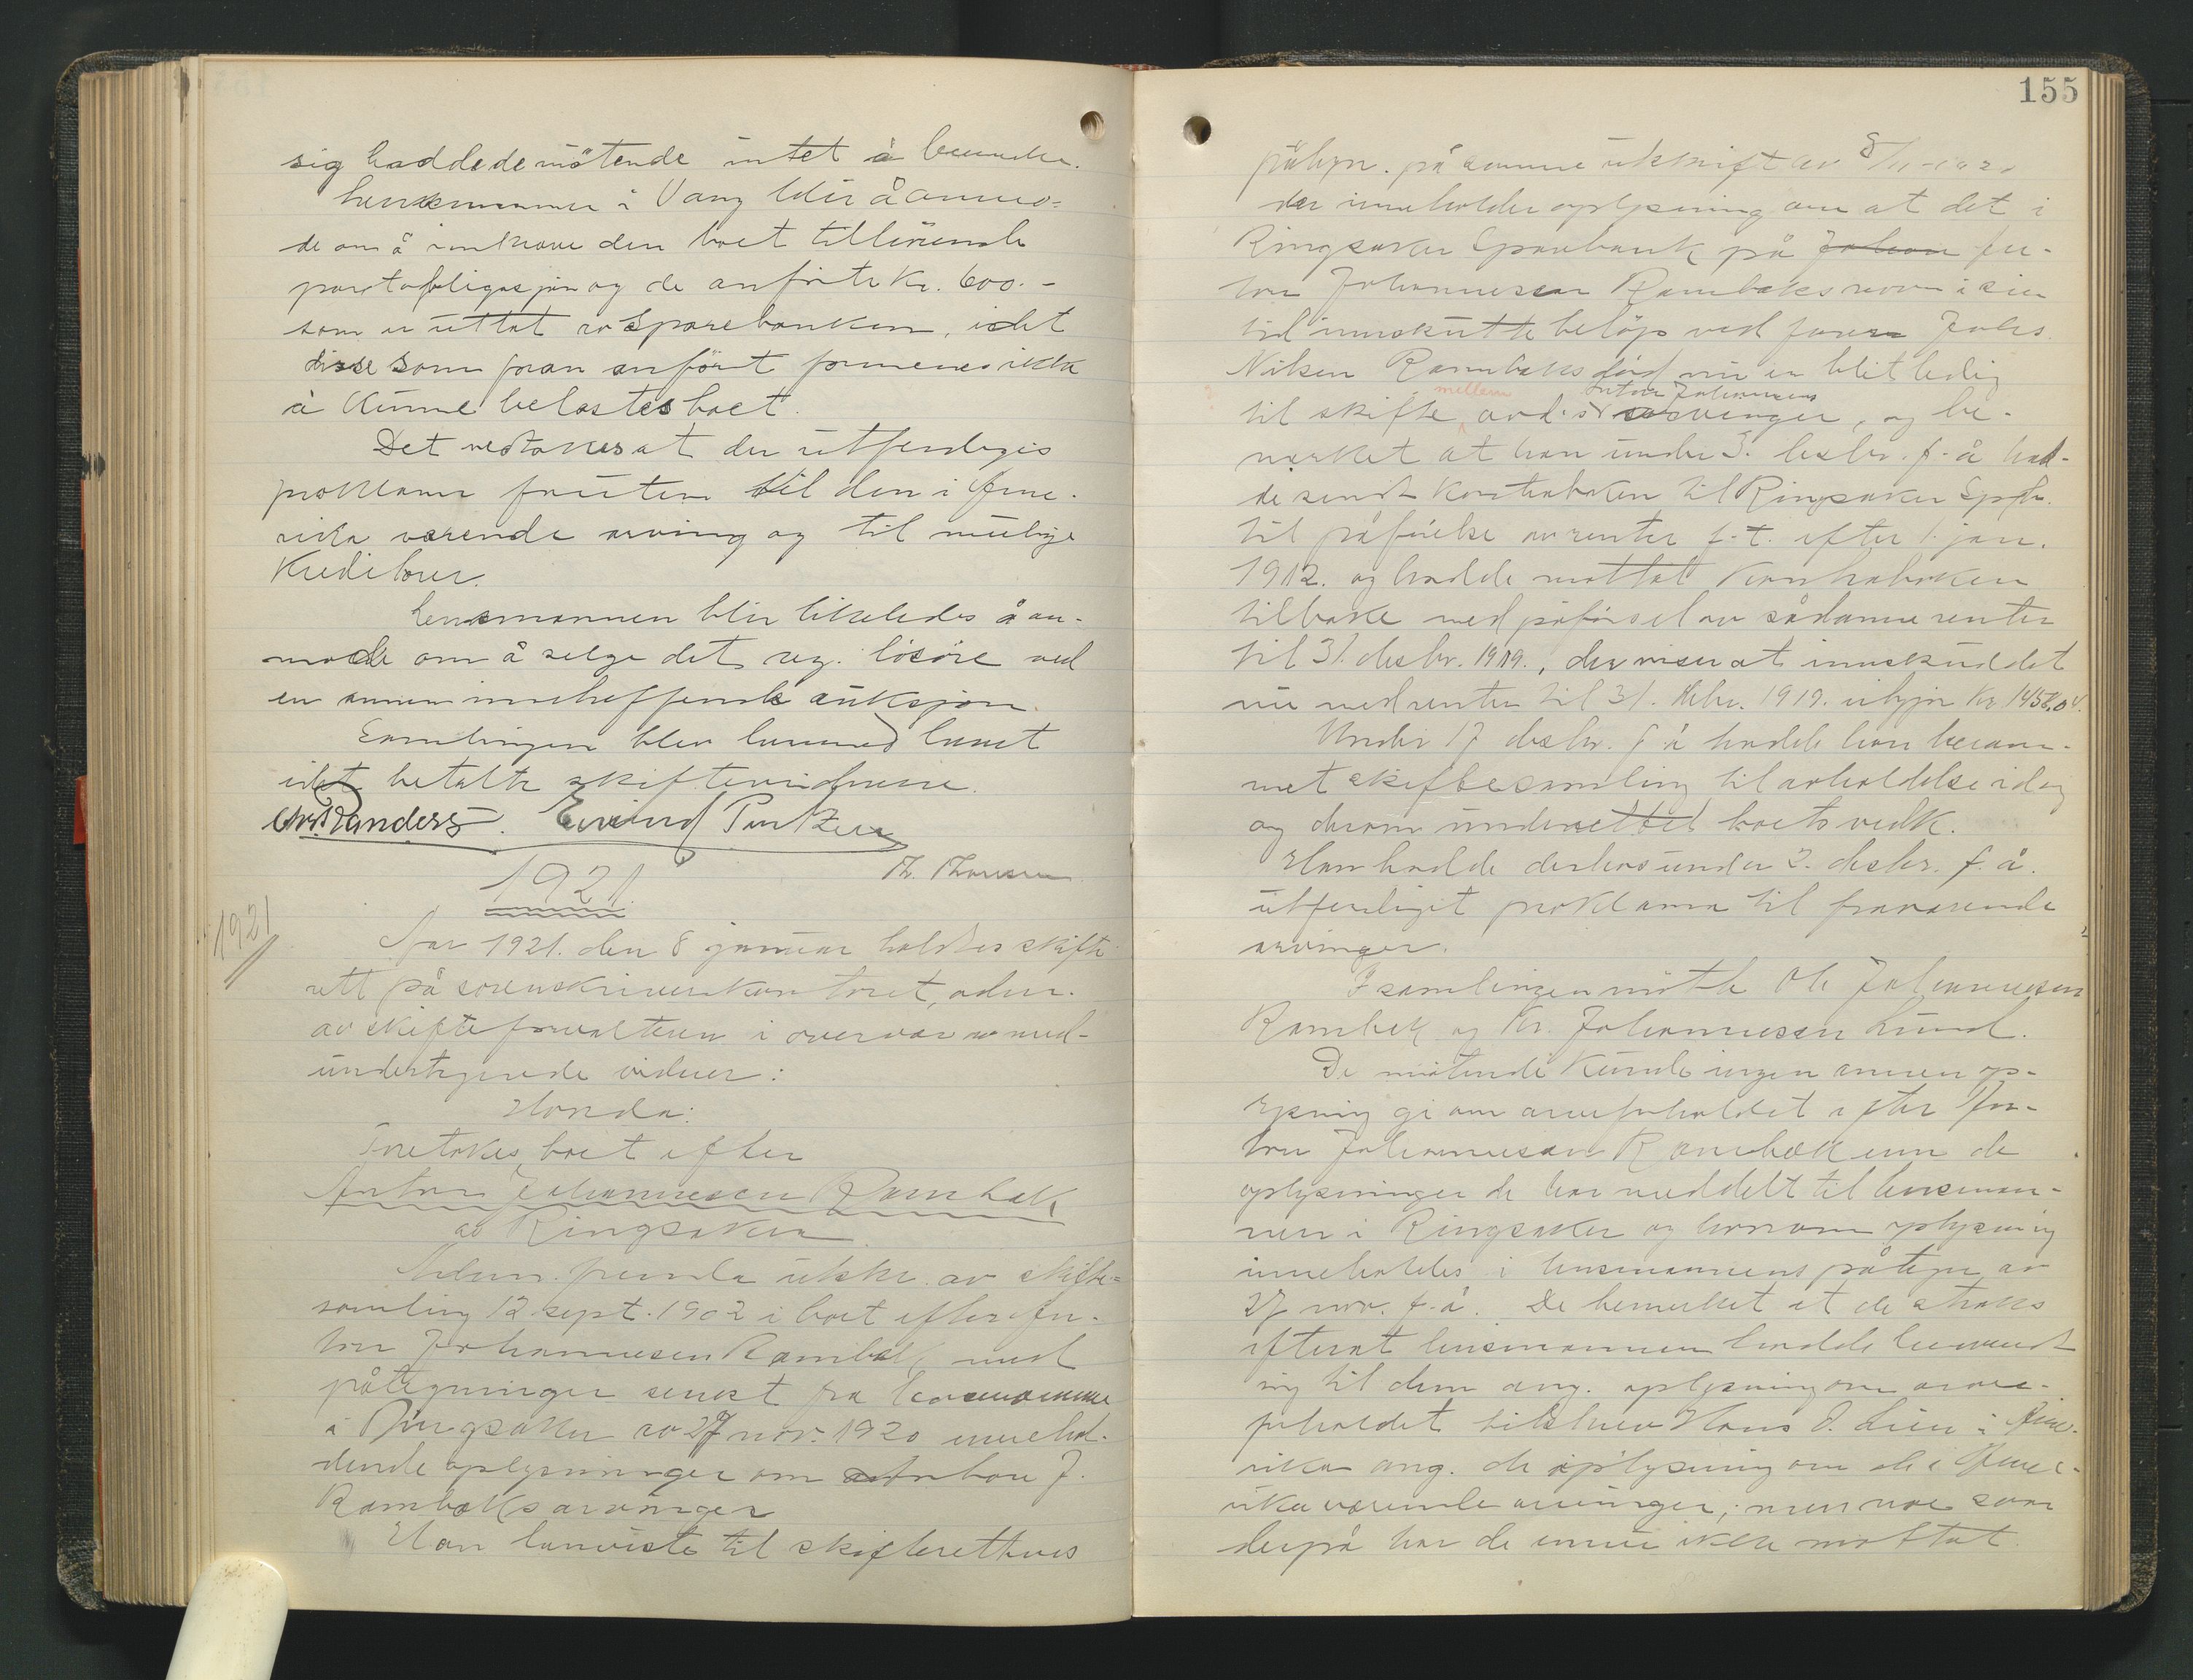 sig hadde de møtende intet å bemerke.
Lensmannen i Vang blir å anmo-
de om å innkreve den boet tilhørende
pantobligasjon og de anførte kr. 600.-
som er uttat av Sparebanken, idet
disse som foran anført formenes ikke
å kunne belastes boet.
Det vedtokes at der utferdiges
proklama foruten til den i Ame-
rika værende arving og til mulige
Kreditorer.
Lensmannen blir likeledes å an-
mode om å selge det reg. løsøre ved
en annen inntreffende auksjon.
Samlingen blev hermed hevet
idet betalte skiftevidnene.
Chr. Randers. Eivind Pentzen
Th. Thoresen
1921.
1921
Aar 1921. den 8 januar holdtes skifte-
rett på sorenskriverkontoret, adm.
av skifteforvalteren i overvær av med-
undertegnede vidner:
Hvorda:
Foretokes boet efter
Anton Johannesen Rambæk
av Ringsaker
Adm. fremla utskr. av skifte-
samling 12 sept. 1902 i boet efter An-
ton Johannesen Rambæk med
påtegninger senest fra lensmannen
i Ringsaker av 27 nov. 1920 innehol-
dende oplysninger om Anton J.
Rambæks arvinger
Han henviste til skifterettens
155
påtegn. på samme utskrift av 8/11-1920
der inneholder oplysning om at det i
Ringsaker Sparebank på Johan An-
ton Johannesen Rambæks navn i sin
tid innskutte beløp ved faren Johs.
Nilsen Rambæks død nu er blit ledig
mellem Anton Johannesens
til skifte avd.s arvinger, og be-
merket at han under 3. desbr. f. å had-
de sendt kontraboken til Ringsaker Spbk.
til påførelse av renter f. t. efter 1. jan.
1912. og hadde mottat kontraboken
tilbake med påførsel av sådanne renter
til 31. desbr. 1919., der viser at innskuddet
nu med renter til 31. debr. 1919. utgjør kr 1458,04.
Under 17 desbr. f å hadde han beram-
met skiftesamling til avholdelse idag
og derom underrettet boets vedk.
Han hadde derhos under 3. desbr. f. å.
utferdiget proklama til fraværende
arvinger.
I samlingen møtte Ole Johannesen
Rambek og Kr. Johannesen Lund.
De møtende kunde ingen annen op-
lysning gi om arveforholdet efter An-
ton Johannesen Rambæk enn de
oplysninger de har meddelt til lensman-
nen i Ringsaker og hvorom oplysning
inneholdes i lensmannens påtegn av
27 nov. f. å. De bemerket at de straks
efterat lensmannen hadde henvendt
sig til dem ang. oplysning om arve-
forholdet tilskrev Hans O. Lien i Ame-
rika ang. de oplysning om de i Ame-
rika værende arvinger; men noe svar
derpå har de ennu ikke mottat.